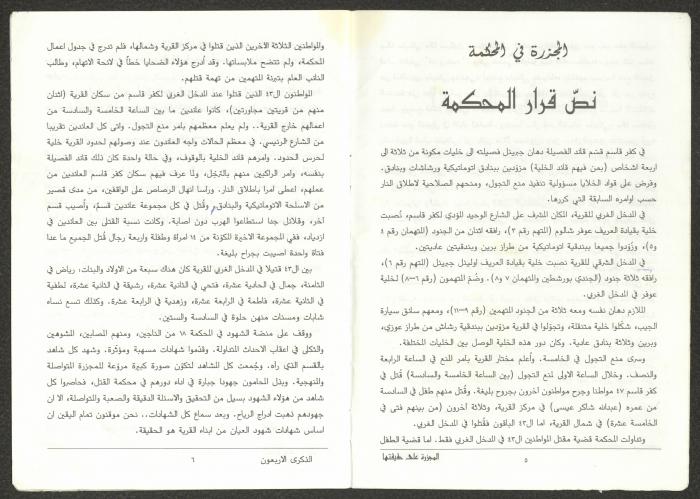 المجزرة في المحكمة
نصّ قرار المحكمة
في كفر قاسم قسّم قائد الفصيلة دهان جبريئل فصيلته الى خليات مكونة من ثلاثة الى
اربعة اشخاص (بمن فيهم قائد الخلية) مزوّدين ببنادق اتوماتيكية ورشاشات وبنادق.
وفرض على قواد الخلايا مسؤولية تنفيذ منع التجول، ومنحهم الصلاحية لاطلاق النار
حسب اوامره السابقة التي كررها.
في المدخل الغربي للقرية، المكان المشرف على الشارع الوحيد المؤدي لكفر قاسم، نُصبت
خلية بقيادة العريف عوفر شالوم (المتهم رقم ٣)، رافقه اثنان من الجنود (المتهمان رقم ٤
و٥)، وزُوّدوا جميعا ببندقية اتوماتيكية من طراز برين وبندقيتين عاديتين.
في المدخل الشرقي للقرية نصبت خلية بقيادة العريف اوليئل جبريئل (المتهم رقم ٦)،
رافقه ثلاثة جنود (الجندي بورشطين والمتهمان ٧ و٨). وضُمّ المتهمون (رقم ٦-٨) لخلية
عوفر في المدخل الغربي.
الملازم دهان نفسه ومعه ثلاثة من الجنود المتهمين (رقم ٩-١١)، ومعهم سائق سيارة
الجيب، شكّلوا خلية متنقلة، وتجوّلوا في القرية مزوّدين ببندقية رشاش من طراز عوزي،
وبرين وثلاثة بنادق عادية. وكان دور هذه الخلية الوصل بين الخليات المختلفة.
وسرى منع التجول في الخامسة. وأُعلم مختار القرية بامر المنع في الساعة الرابعة
والنصف. وخلال الساعة الاولى لمنع التجول (بين الساعة الخامسة والسادسة) قُتل في
كفر قاسم ٤٧ مواطنا وجرح مواطنون آخرون بجروح بليغة. وقُتل منهم طفل في السادسة
من عمره (عبدالله شاكر عيسى) في مركز القرية، وثلاثة آخرون (من بينهم فتى في
الخامسة عشرة) في شمال القرية، اما الـ٤٣ الباقون فقُتلوا في المدخل الغربي.
وتناولت المحكمة قضية مقتل المواطنين الـ٤٣ في المدخل الغربي فقط. اما قضية الطفل
المجزرة على حقيقتها
٥
والمواطنين الثلاثة الآخرين الذين قتلوا في مركز القرية وشمالها، فلم تدرج في جدول اعمال
المحكمة، ولم تتضح ملابساتها. وقد أدرج هؤلاء الضحايا خطأً في لائحة الاتهام، وطالب
النائب العام بتبرئة المتهمين من تهمة قتلهم.
المواطنون الـ٤٣ الذين قتلوا عند المدخل الغربي لكفر قاسم من سكان القرية (اثنان
منهم من قريتين مجاورتين)، كانوا عائدين ما بين الساعة الخامسة والسادسة من
اعمالهم خارج القرية.. ولم يعلم معظمهم بامر منع التجول. واتى كل العائدين تقريبا
من الشارع الرئيسي. في معظم الحالات واجه العائدون عند وصولهم لحدود القرية خلية
لحرس الحدود. وامرهم قائد الخلية بالوقوف، وفي حالة واحدة كان ذلك قائد الفصيلة
بنفسه، وامر الراكبين منهم بالترجّل، ولمّا عرف فيهم سكان كفر قاسم العائدين من
عملهم، اعطى امرا باطلاق النار. ورأسا انهال الرصاص على الواقفين، من مدى قصير
من الاسلحة الاتوماتيكية والبنادق، وقُتل في كل مجموعة عائدين قسمٌ، وأصيب قسم
آخر، وقلائل جدا استطاعوا الهرب دون اصابة. وكانت نسبة القتلى بين العائدين في
ازدياد، ففي المجموعة الاخيرة المكونة من ١٤ امرأة وطفلة واربعة رجال قُتل الجميع ما عدا
فتاة واحدة اصيبت بجراح بليغة.
بين الـ٤٣ قتيلا في المدخل الغربي للقرية كان هناك سبعة من الاولاد والبنات: رياض في
الثامنة، جمال في الحادية عشرة، فتحي في الثانية عشرة، رشيقة في الثانية عشرة، لطفية
في الثانية عشرة، فاطمة في الرابعة عشرة، وزهدية في الرابعة عشرة. وكذلك تسع نساء
شابات ومسنات منهن حلوة في السادسة والستين.
ووقف على منصّة الشهود في المحكمة ١٨ من الناجين، ومنهم المصابين، المشوهين
والثكلى في اعقاب الاحداث المتداولة. وقدّموا شهادات مسهبة ومؤثرة. وشهد كل شاهد
بالقسم الذي رآه. وجُمعت كل المشاهد لتكوّن صورة كبيرة مروّعة للمجزرة المتواصلة
والمنهجية. وبذل المحامون جهودا جبارة في اداء دورهم في محكمة القتل، فحاصروا كل
شاهد من هؤلاء الشهود بسيل من التحقيق والاسئلة الدقيقة والصعبة والمتواصلة، الا ان
جهودهم ذهبت ادراج الرياح. وبعد سماع كل الشهادات.. نحن موقنون تمام اليقين ان
اساس شهادات شهود العيان من ابناء القرية هو الحقيقة.
الذكرى الاربعون
٦